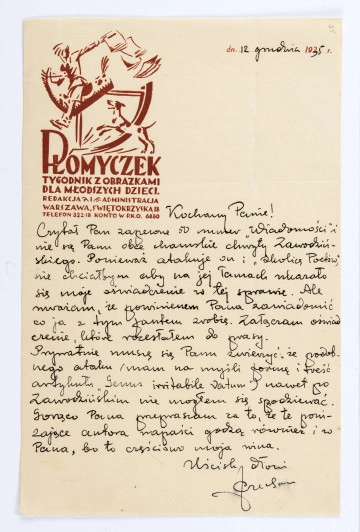 dn. 12 grudnia 1935 r.
PŁOMYCZEK
TYGODNIK Z OBRAZKAMI
DLA MŁODSZYCH DZIECI.
REDAKCJA I ADMINISTRACJA
WARSZAWA, ŚWIĘTOKRZYSKA 18
TELEFON 322-18 KONTO W P.K.O. 6880
Kochany Panie!
Czytał Pan zapewne 50 numer "Wiadomości" i
nie są Panu obce chamskie chwyty Zawodziń-
skiego. Ponieważ atakuje on i "Okolicę Poetów"
nie chciałbym aby na jej łamach ukazało
się moje oświadczenie w tej sprawie. Ale
uważam, że powinienem Pana zawiadomić
co ja z tym fantem zrobię. Załączam oświad
czenie, które rozesłałem do prasy.
Prywatnie muszę się Panu zwierzyć, że podob-
nego ataku (mam na myśli formę i treść
artykułu "Genus irritabile vatum") nawet po
Zawodzińskim nie mogłem się spodziewać.
Gorąco Pana przepraszam za to, że te poni-
żające autora napaści godzą również i w
Pana, bo to częściowo moja wina.
Uścisk dłoni